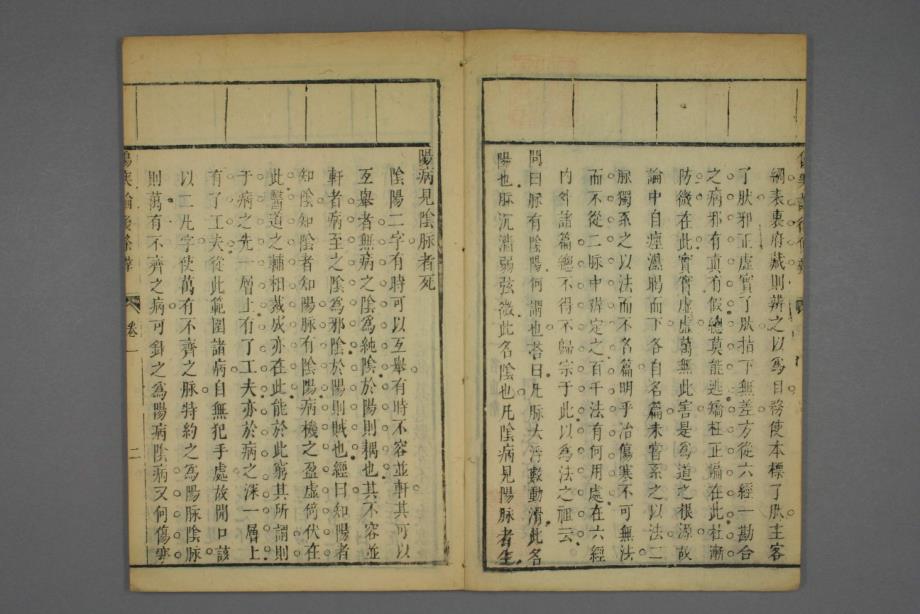 網表裏府藏則辨之以為日務使本標了然主客
了然邪正虛實了然指下無差方從六經一勘合
之病邪有真有假總莫能逃矯枉正偏在此杜漸
防微在此實實虛虛萬無此害是為道之根源故
論中自痙濕暍而下各自名篇未嘗系之以法二
脉獨系之以法而不名篇明乎治傷寒不可無法
而不從二脉中稱定之百千法有何用處在六經
內外諸篇總不得不歸宗于此以為法之祖云
問曰脉有陰陽何謂也答曰凡脉大浮數動滑此名
陽也脉沉濇弱弦微此名陰也凡陰病見陽脉者生
陽病見陰脉者死
陰陽二字有時可以互舉有時不容並軒其可以
互舉者無病之陰為純陰於陽則耦也其不容並
軒者病至之陰為邪陰於陽則賊也經曰知陽者
知陰知陰者知陽脉有陰陽病機之盈虛倚伏在
此醫道之輔相裁成亦在此能於此窮其所謂則
于病之先一層上有了工夫亦於病之深一層上
有了工夫從此範圍諸病自無犯手處故開口該
以二凡字使萬有不齊之脉特約之為陽脉陰脉
則萬有不齊之病可斜之為陽病陰病又何傷寒
傷寒論後條辨
卷一
二